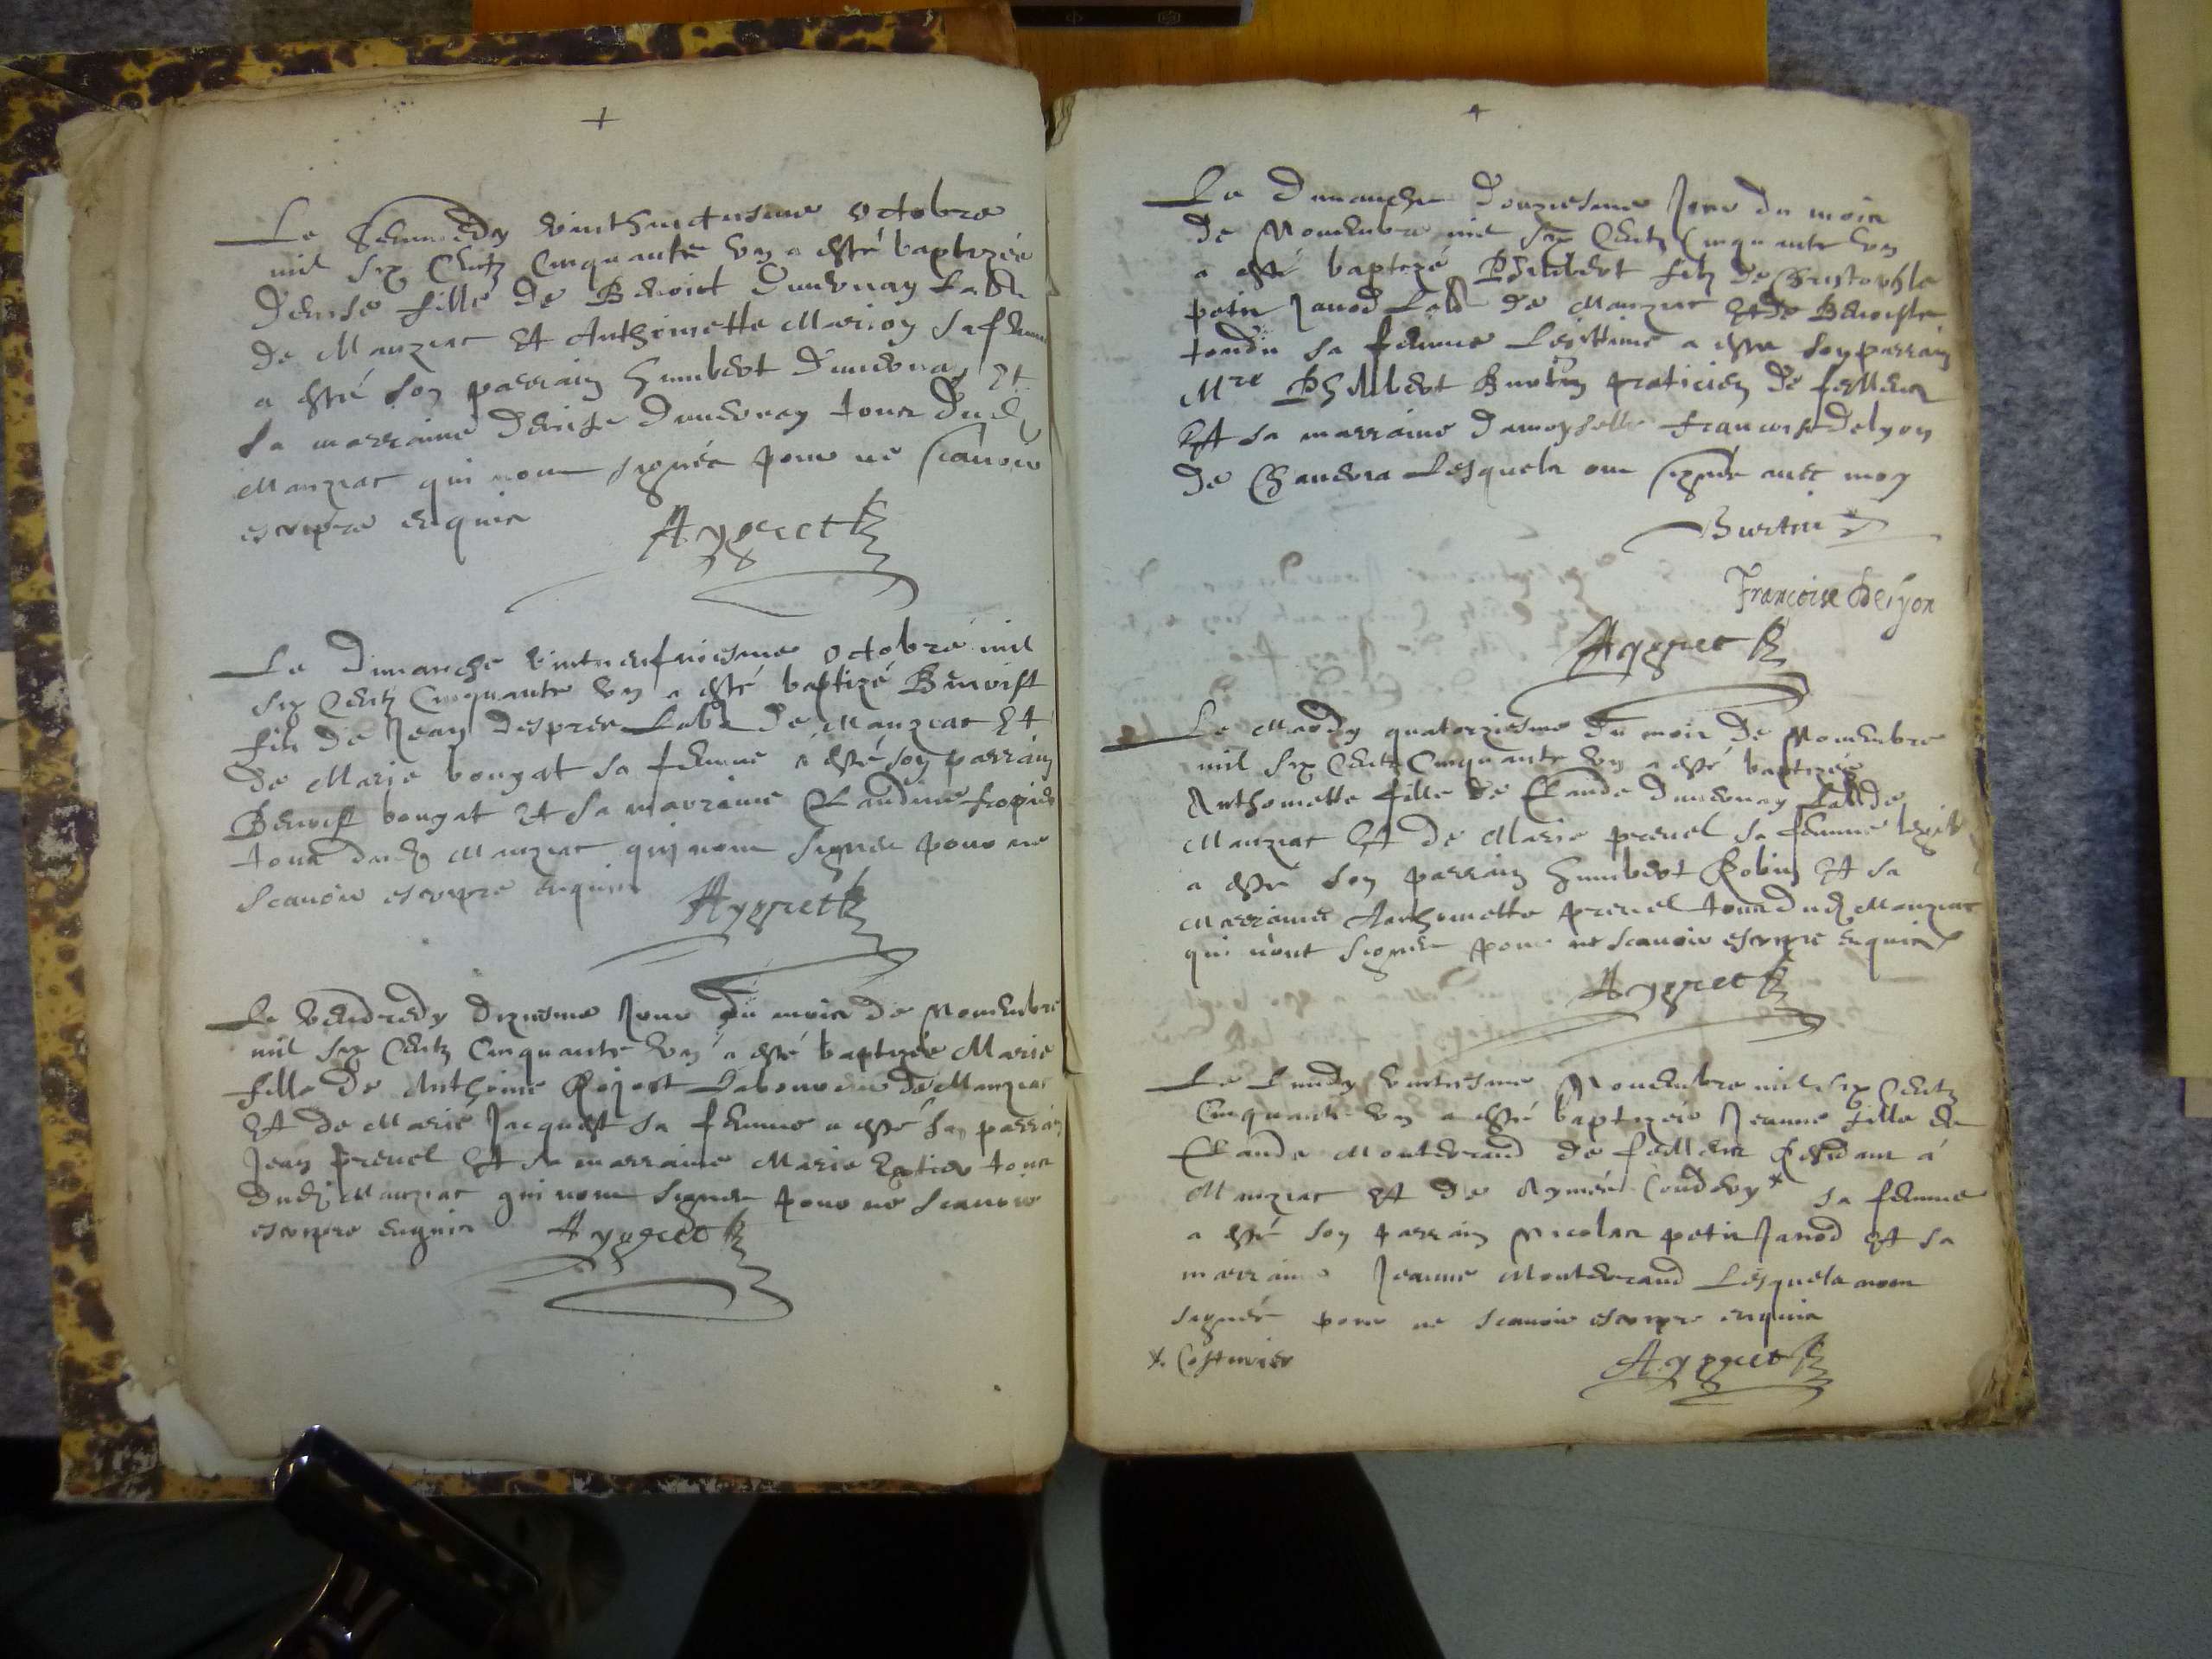 +
Le Samedy vinthuictiesme octobre
mil six Centz Cinquante vn a esté baptizée
Denise fille de Benoist Duuernay Labr
de Manziat Et Anthoinette Marion sa femme
a esté son parrain Humbert Duuernay Et
sa marraine Denise Duuernay tous dud
Manziat qui nont signés pour ne scauoir
escripre enquis
Ayggret
Le Dimanche vintneufuiesme octobre mil
six Centz Cinquante vn a esté baptizé Benoist
filz de Jean Desprez Labr de Manziat Et
de Marie bougat sa femme a esté son parrain
Benoist bougat Et sa marraine Claudine
tous dud Manziat qui nont signés pour ne
scauoir escripre enquis
Ayggret
Le vendredy dixiesme Jour du mois de Nouembre
mil six Centz Cinquante vn a esté baptizée Marie
fille de Anthoine Laboureur de Manziat
Et de Marie Jacquet sa femme a esté son parrain
Jean preuel Et sa marraine Marie tous
dud Manziat qui nont signés pour ne scauoir
escripre enquis
Ayggret
+
Le Dimanche Douziesme Jour du mois
de Nouembre mil six Centz Cinquante vn
a esté baptizé Philibert filz de Christophle
petit Janod Labr de Manziat Et de Benoiste
tondu sa femme Legittime a esté son parrain
Mre Philibert Burtin praticien de felliens
Et sa marraine damoyselle francoise Delyon
de Chanera Lesquels ont signés auec moy
Burtin
Francoise Delyon
Ayggret
Le Mardy quatorziesme du mois de Nouembre
mil six Centz Cinquante vn a esté baptizée
Anthoinette fille de Claude Duuernay Labr de
Manziat Et de Marie preuel sa femme legit
a esté son parrain Humbert Robin Et sa
Marraine Anthoinette preuel tous dud Manziat
qui nont signés pour ne scauoir escripre enquis
Ayggret
Le Lundy vintiesme Nouembre mil six Centz
Cinquante vn a esté baptizée Jeanne fille de
Claude Monterrand de felliens Residant á
Manziat Et de Aymée Coudery * sa femme
a esté son parrain Nicolas petit Janod Et sa
marraine Jeanne Monterrand Lesquels nont
signés pour ne scauoir escripre enquis
* Costurier
Ayggret